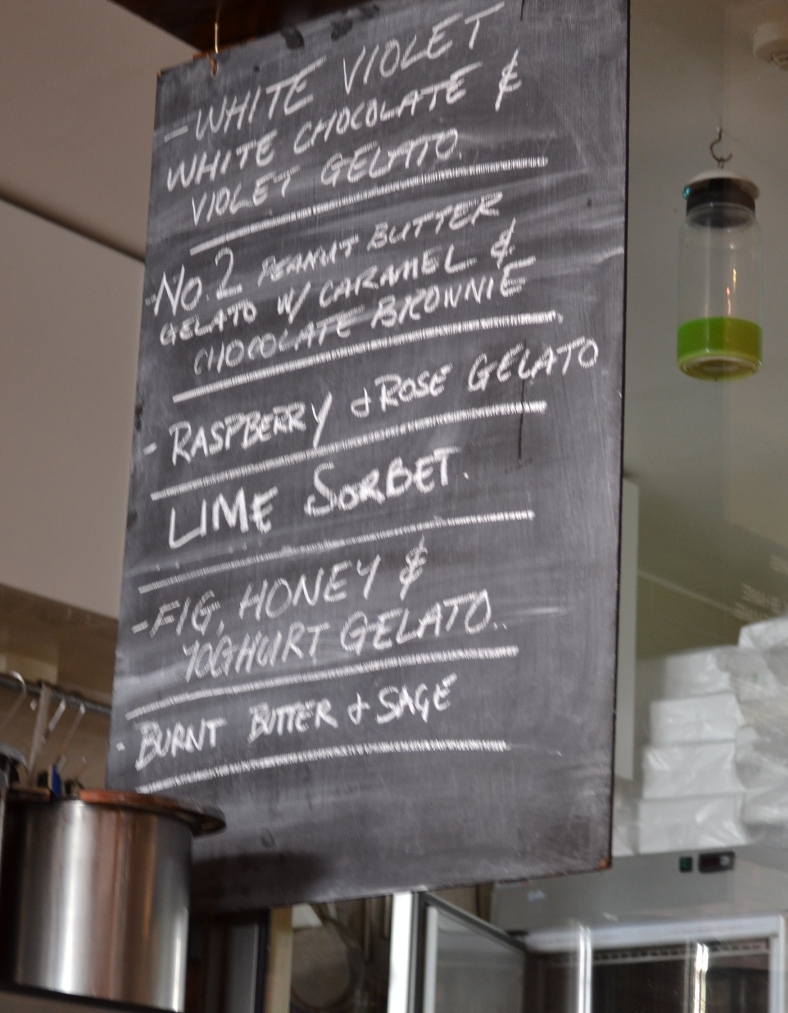 - WHITE VIOLET
WHITE CHOCOLATE &
VIOLET GELATO.
- No. 2 PEANUT BUTTER
GELATO W/ CARAMEL &
CHOCOLATE BROWNIE
- RASPBERRY & ROSE GELATO
LIME SORBET.
- FIG, HONEY &
YOGHURT GELATO..
- BURNT BUTTER & SAGE